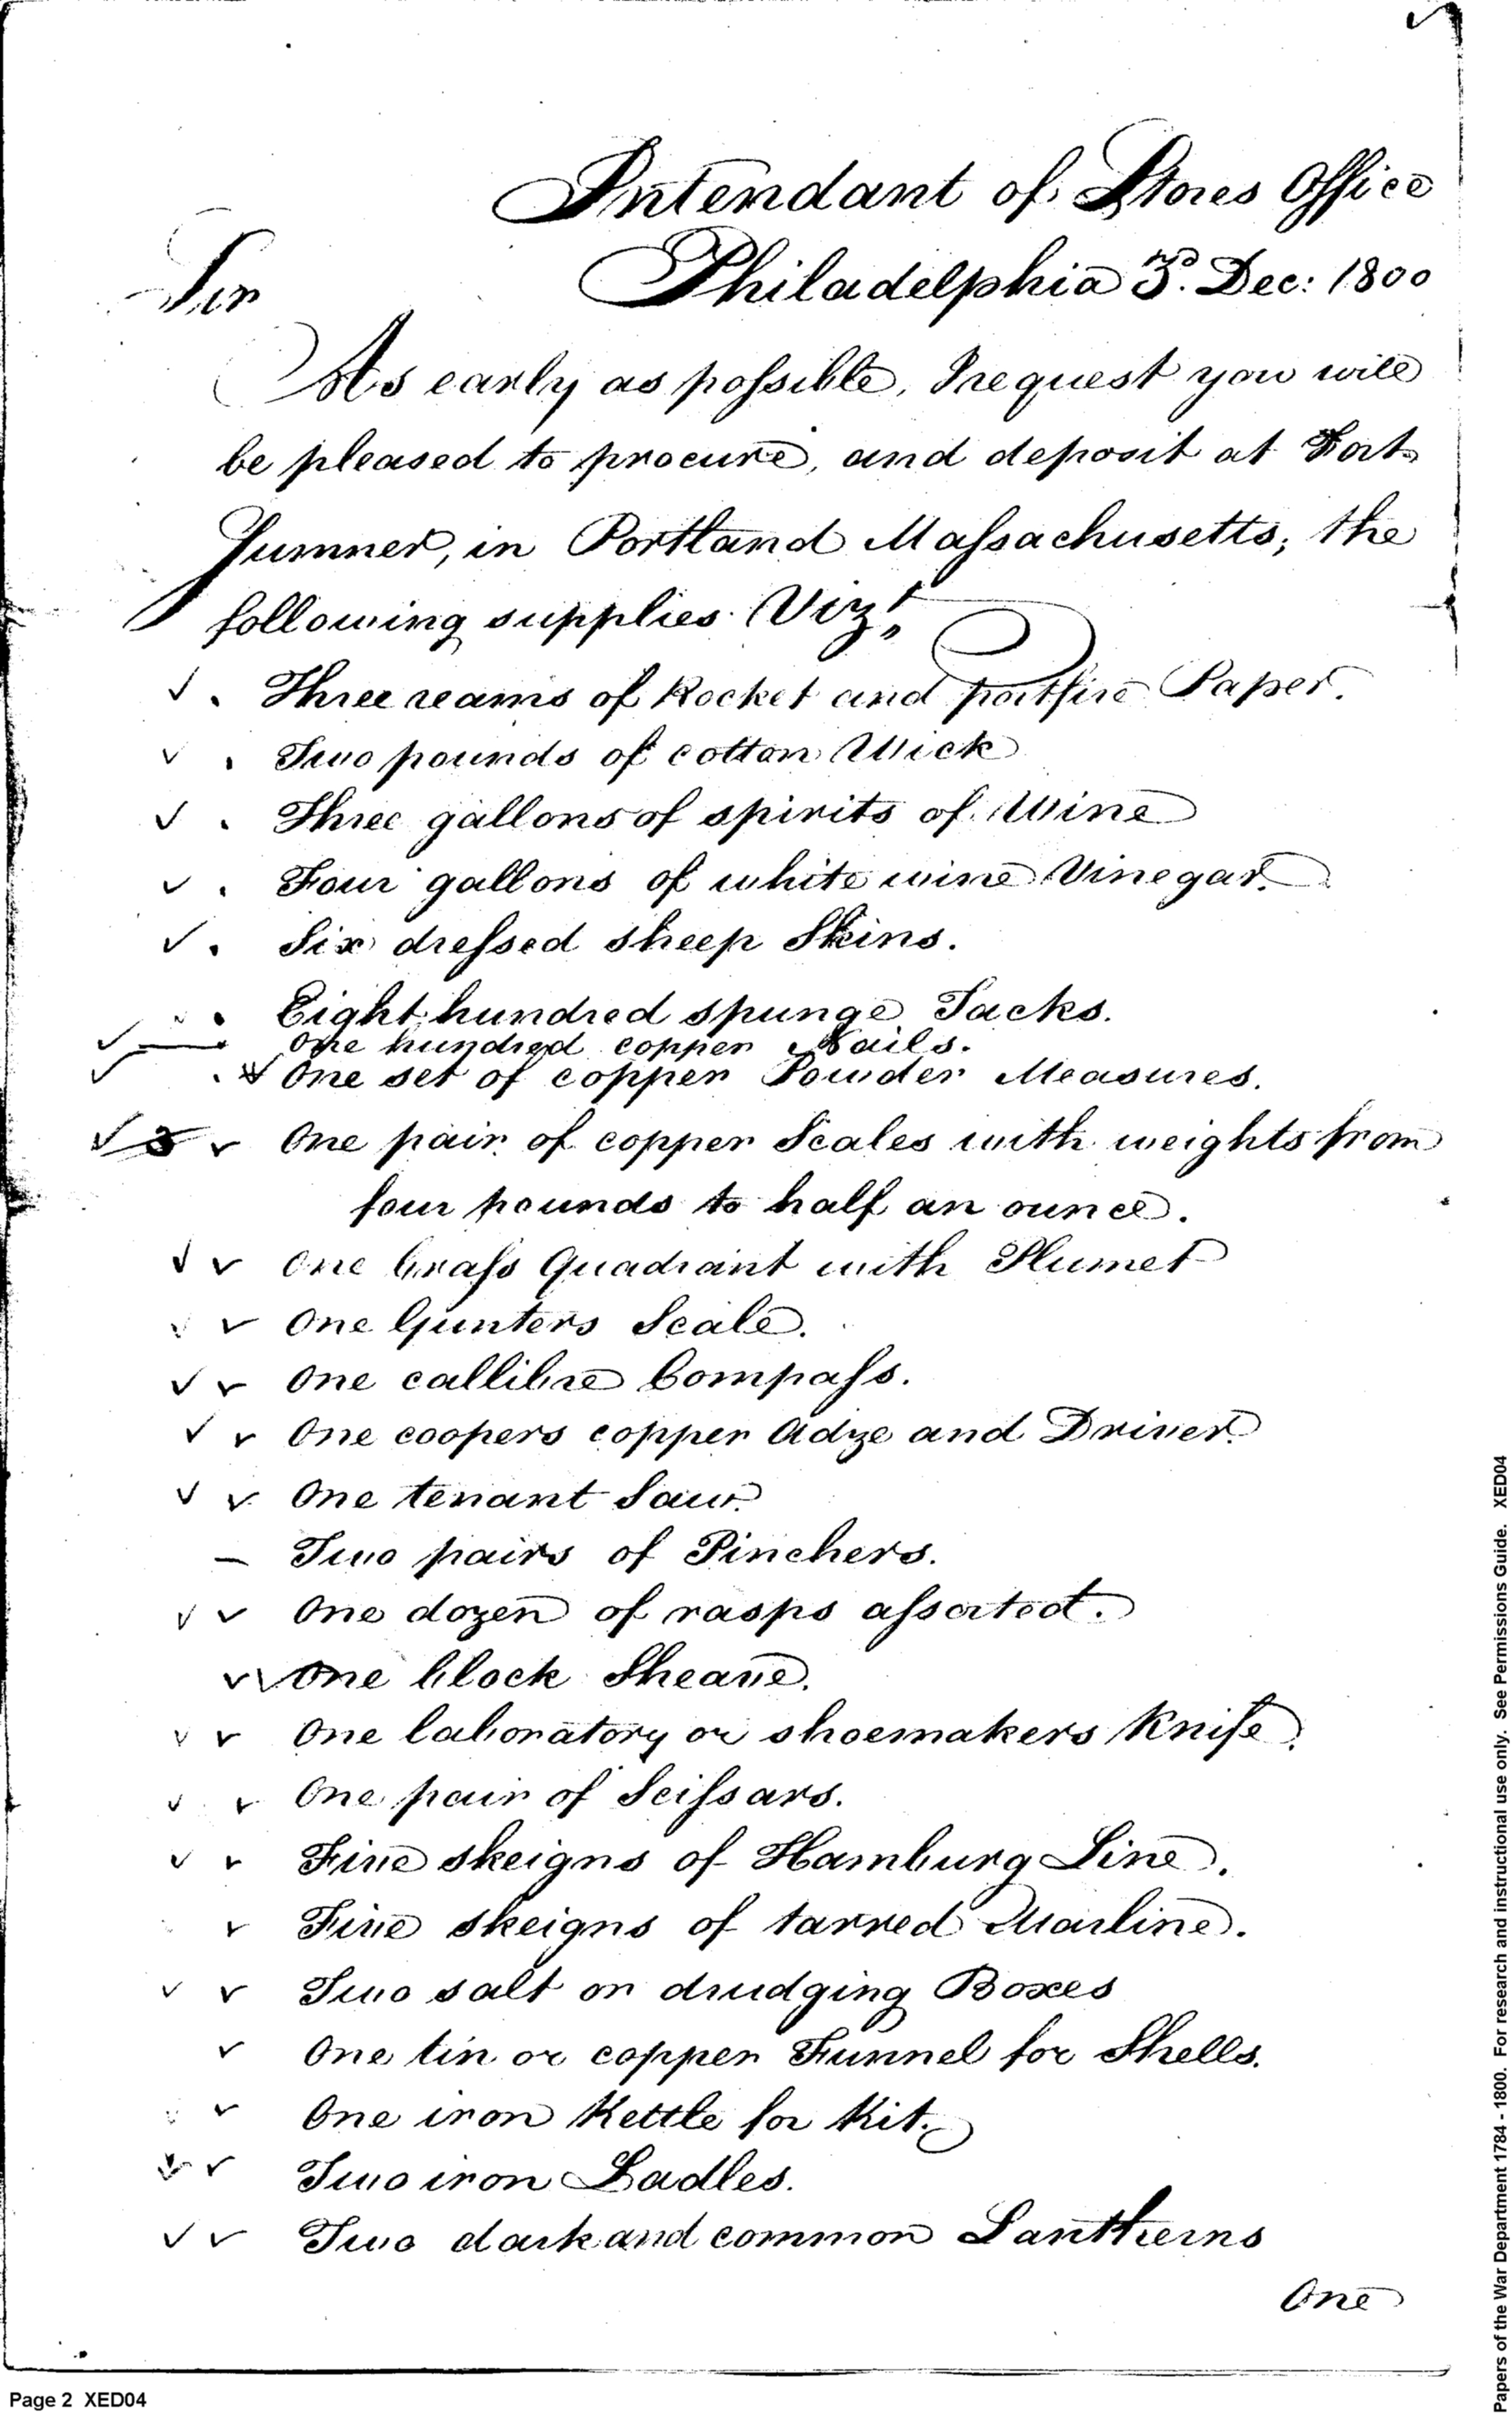 Intendant of Stores Office
Philadelphia 3d. Dec: 1800
Sir
As early as possible, I request you will
be pleased to procure, and deposit at Fort
Sumner, in Portland Massachusetts; the
following supplies Vizt.
Three reams of Rocket and portfire Paper.
Two pounds of cotton Wick
Three gallons of spirits of Wine
Four gallons of white wine Vinegar.
Six dressed sheep Skins.
Eight hundred spunge Tacks.
One hundred copper Nails.
One set of copper Powder Measures.
One pair of copper Scales with weights from
four pounds to half an ounce.
One brass Quadrant with Plumet
One Gunters Scale.
One callibre Compass.
One coopers copper Adze and Driver.
One tenant Saw.
Two pairs of Pinchers.
One dozen of rasps assorted.
One block Sheave.
One laboratory or shoemakers Knife.
One pair of Scissars.
Five skeigns of Hamburg Line.
Five skeigns of tarred Marline.
Two salt or drudging Boxes
One tin or copper Funnel for Shells.
One iron Kettle for Kit.
Two iron Ladles.
Two dark and common Lantherns
One
Page 2 XED04
Papers of the War Department 1784 - 1800. For research and instructional use only. See Permissions Guide. XED04